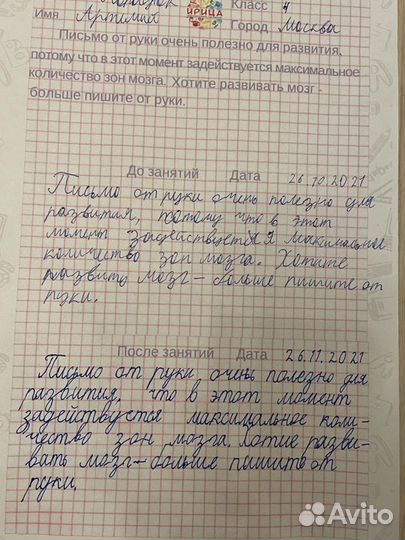 Класс 4
Имя Артилиа
ИРИЦА
Город Москва
Письмо от руки очень полезно для развития,
потому что в этот момент задействуется максимальное
количество зон мозга. Хотите развивать мозг -
больше пишите от руки.
До занятий Дата 26.10.2021
Письмо от руки очень полезно для
развития, потому что в этот
момены задействуется максимальное
количество зон мозга. Хотите
развить мозг – больше пишите от
руки.
После занятий Дата 26.11.2021
Письмо от руки очень полезно для
развития. что в этот момент
задействуется максимальное коли-
чество зон мозга. Хотие разви-
вать мозг – больше пишите от
руки.
Avito